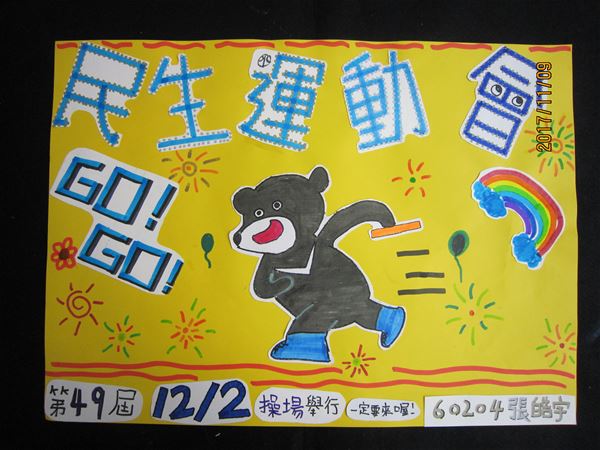 民生運動會
2017/11/09
GO!
GO!
第49屆 12/2 操場舉行 一定要來喔! 60204張皓宇